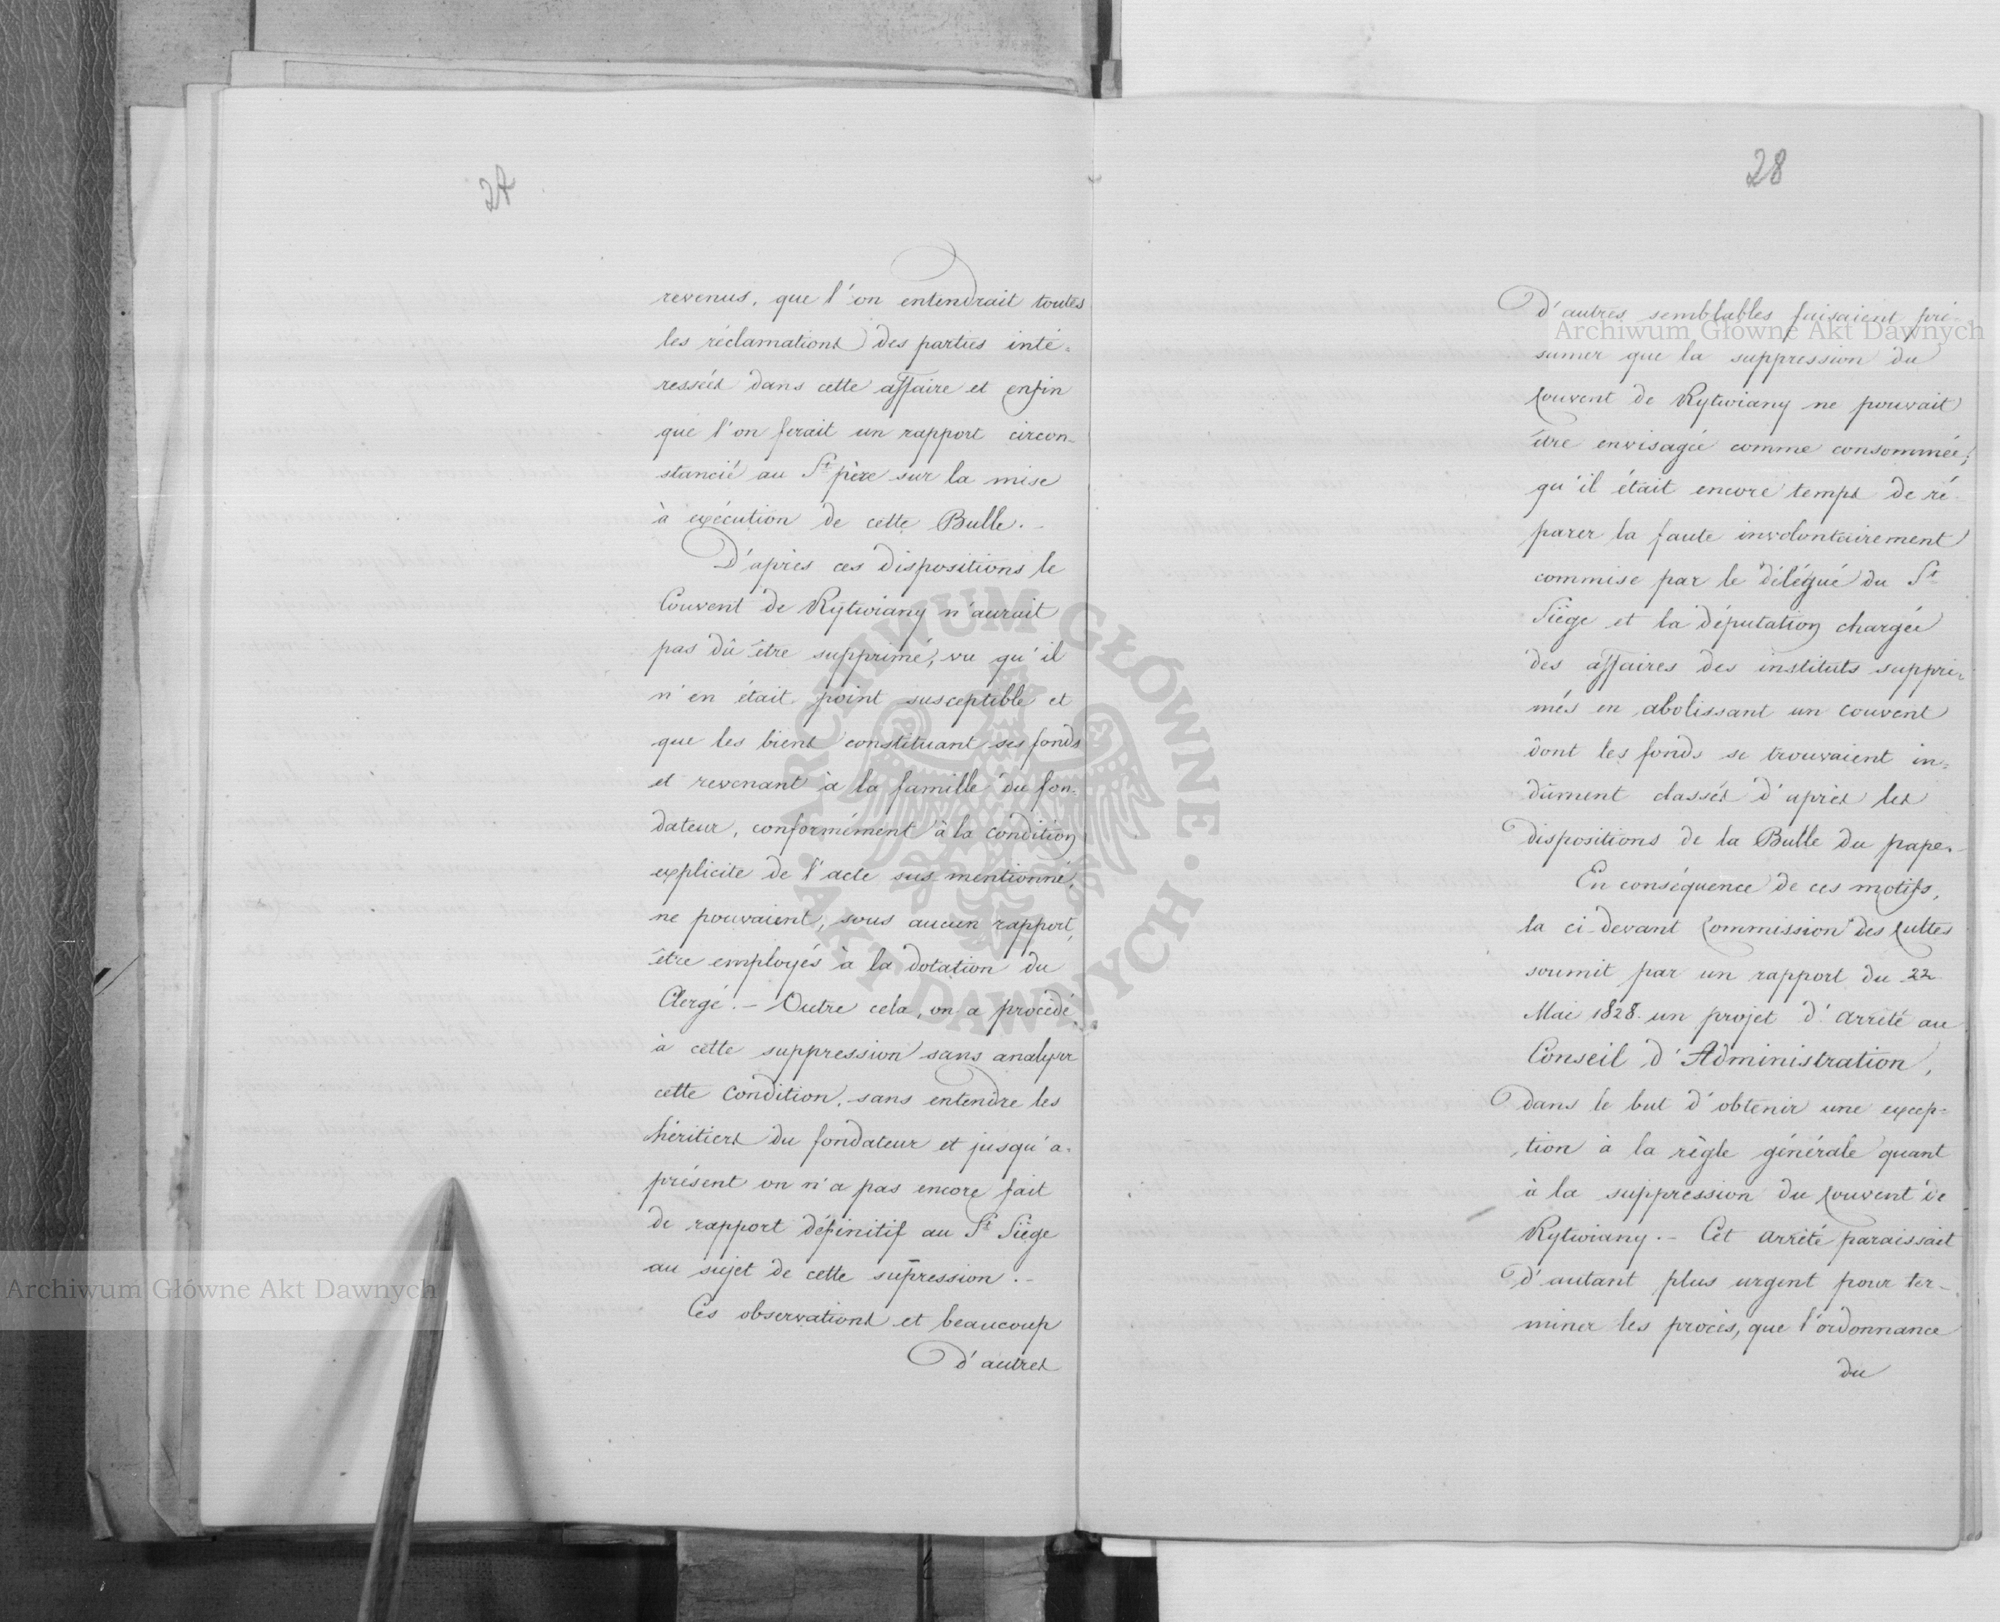 27
revenus, que l'on entendrait toutes
les réclamations des parties inté-
ressées dans cette affaire et enfin
que l'on ferait un rapport circon-
stancié au St père sur la mise
à exécution de cette Bulle. -
D'après ces dispositions le
Couvent de Rytwiany n'aurait
pas dû être supprimé, vu qu'il
n'en était point susceptible et
que les biens constituant ses fonds
et revenant à la famille du fon-
dateur, conformément à la condition
explicite de l'acte sus mentionné,
ne pouvaient, sous aucun rapport,
être employés à la dotation du
Clergé. - Outre cela, on a procédé
à cette suppression sans analyser
cette condition, sans entendre les
héritiers du fondateur et jusqu'à-
présent on n'a pas encore fait
de rapport définitif au St Siège
au sujet de cette supression. -
Ces observations et beaucoup
d'autres
28
d'autres semblables faisaient pré-
sumer que la suppression du
Couvent de Rytwiany ne pouvait
être envisagée comme consommée;
qu'il était encore temps de ré-
parer la faute involontairement
commise par le délégué du St
Siège et la députation chargée
des affaires des instituts suppri-
més en abolissant un couvent
dont les fonds se trouvaient in-
dûment classés d'après les
dispositions de la Bulle du pape. -
En conséquence de ces motifs,
la ci-devant Commission des Cultes
soumit par un rapport du 22
Mai 1828. un projet d'arrêté au
Conseil d'Administration,
dans le but d'obtenir une excep-
tion à la règle générale quant
à la suppression du Couvent de
Rytwiany. - Cet arrêté paraissait
d'autant plus urgent pour ter-
miner les procès, que l'ordonnance
du
Archiwum Główne Akt Dawnych
Archiwum Główne Akt Dawnych
ARCHIWUM GŁÓWNE AKT DAWNYCH